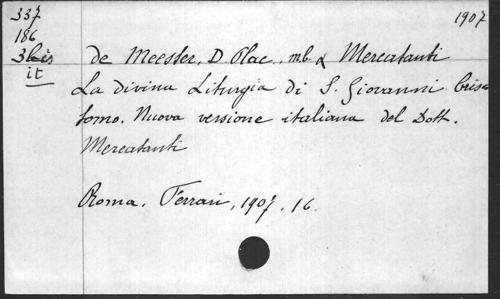 337
1907
186
3bis
it
de Meester, D. Plac. m.b. & Mercatanti
La divina Liturgia di S. Giovanni Criso
stomo. Nuova versione italiana del Dott.
Mercatanti
Roma. Ferrari, 1907. 16.